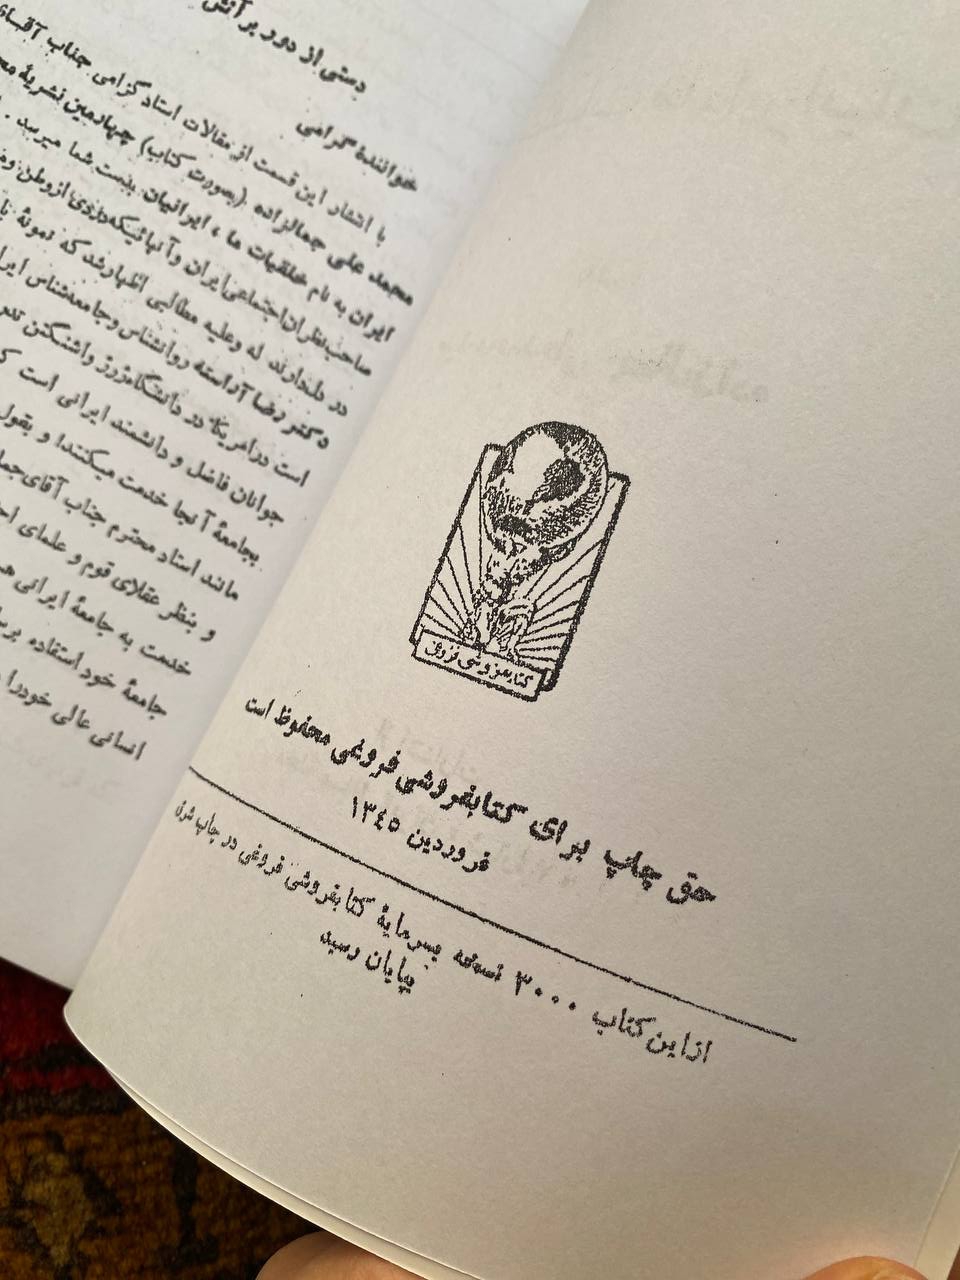 کتابفروشی فروغی
حق چاپ برای کتابفروشی فروغی محفوظ است
فروردین ۱۳٤٥
ازاین کتاب ۳۰۰۰ نسخه بسرمایهٔ کتابفروشی فروغی در چاپ شرق
بپایان رسید
دستی از دور بر آتش
خوانندهٔ گرامی
با انتشار این قسمت از مقالات استاد گرامی جناب آقای
محمد علی جمالزاده (بصورت کتاب) چهارمین نشریهٔ
ایران به نام خلقیات ما ، ایرانیان بدست شما میرسد .
صاحب‌نظران اجتماعی ایران و آنهائیکه دردی از وطن
در دلدارند له وعلیه مطالبی اظهار شد که نمونهٔ
دکتر رضا آراسته روانشناس و جامعه‌شناس
است در امریکا در دانشگاه ژرژ واشنگتن
جوانان فاضل و دانشمند ایرانی است
بجامعهٔ آنجا خدمت میکنند! و بقول
مانند استاد محترم جناب آقای
و بنظر عقلای قوم و علمای
خدمت به جامعهٔ ایرانی
جامعهٔ خود استفاده
انسانی عالی خودرا